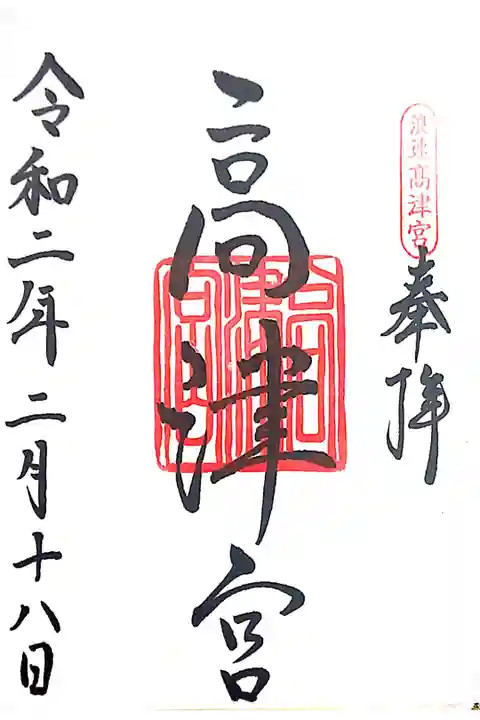 浪速高津宮
奉拝
高津宮
令和二年二月十八日